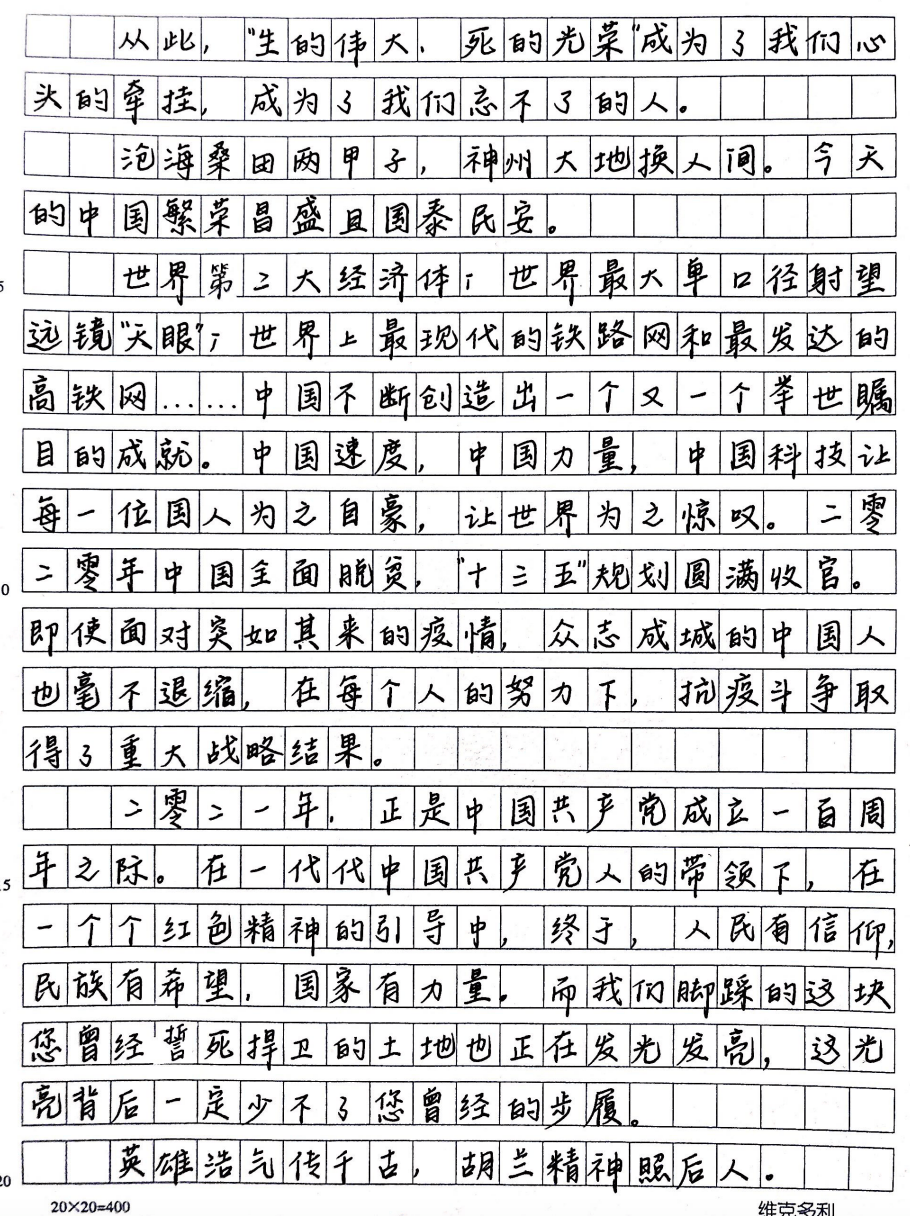 从此，“生的伟大、死的光荣”成为了我们心
头的牵挂，成为了我们忘不了的人。
沧海桑田两甲子，神州大地换人间。今天
的中国繁荣昌盛且国泰民安。
世界第二大经济体；世界最大单口径射望
远镜“天眼”；世界上最现代的铁路网和最发达的
高铁网……中国不断创造出一个又一个举世瞩
目的成就。中国速度，中国力量，中国科技让
每一位国人为之自豪，让世界为之惊叹。二零
二零年中国全面脱贫，“十三五”规划圆满收官。
即使面对突如其来的疫情，众志成城的中国人
也毫不退缩，在每个人的努力下，抗疫斗争取
得了重大战略结果。
二零二一年，正是中国共产党成立一百周
年之际。在一代代中国共产党人的带领下，在
一个个红色精神的引导中，终于，人民有信仰，
民族有希望，国家有力量。而我们脚踩的这块
您曾经誓死捍卫的土地也正在发光发亮，这光
亮背后一定少不了您曾经的步履。
英雄浩气传千古，胡兰精神照后人。
5
10
15
20
20×20=400
维克多利